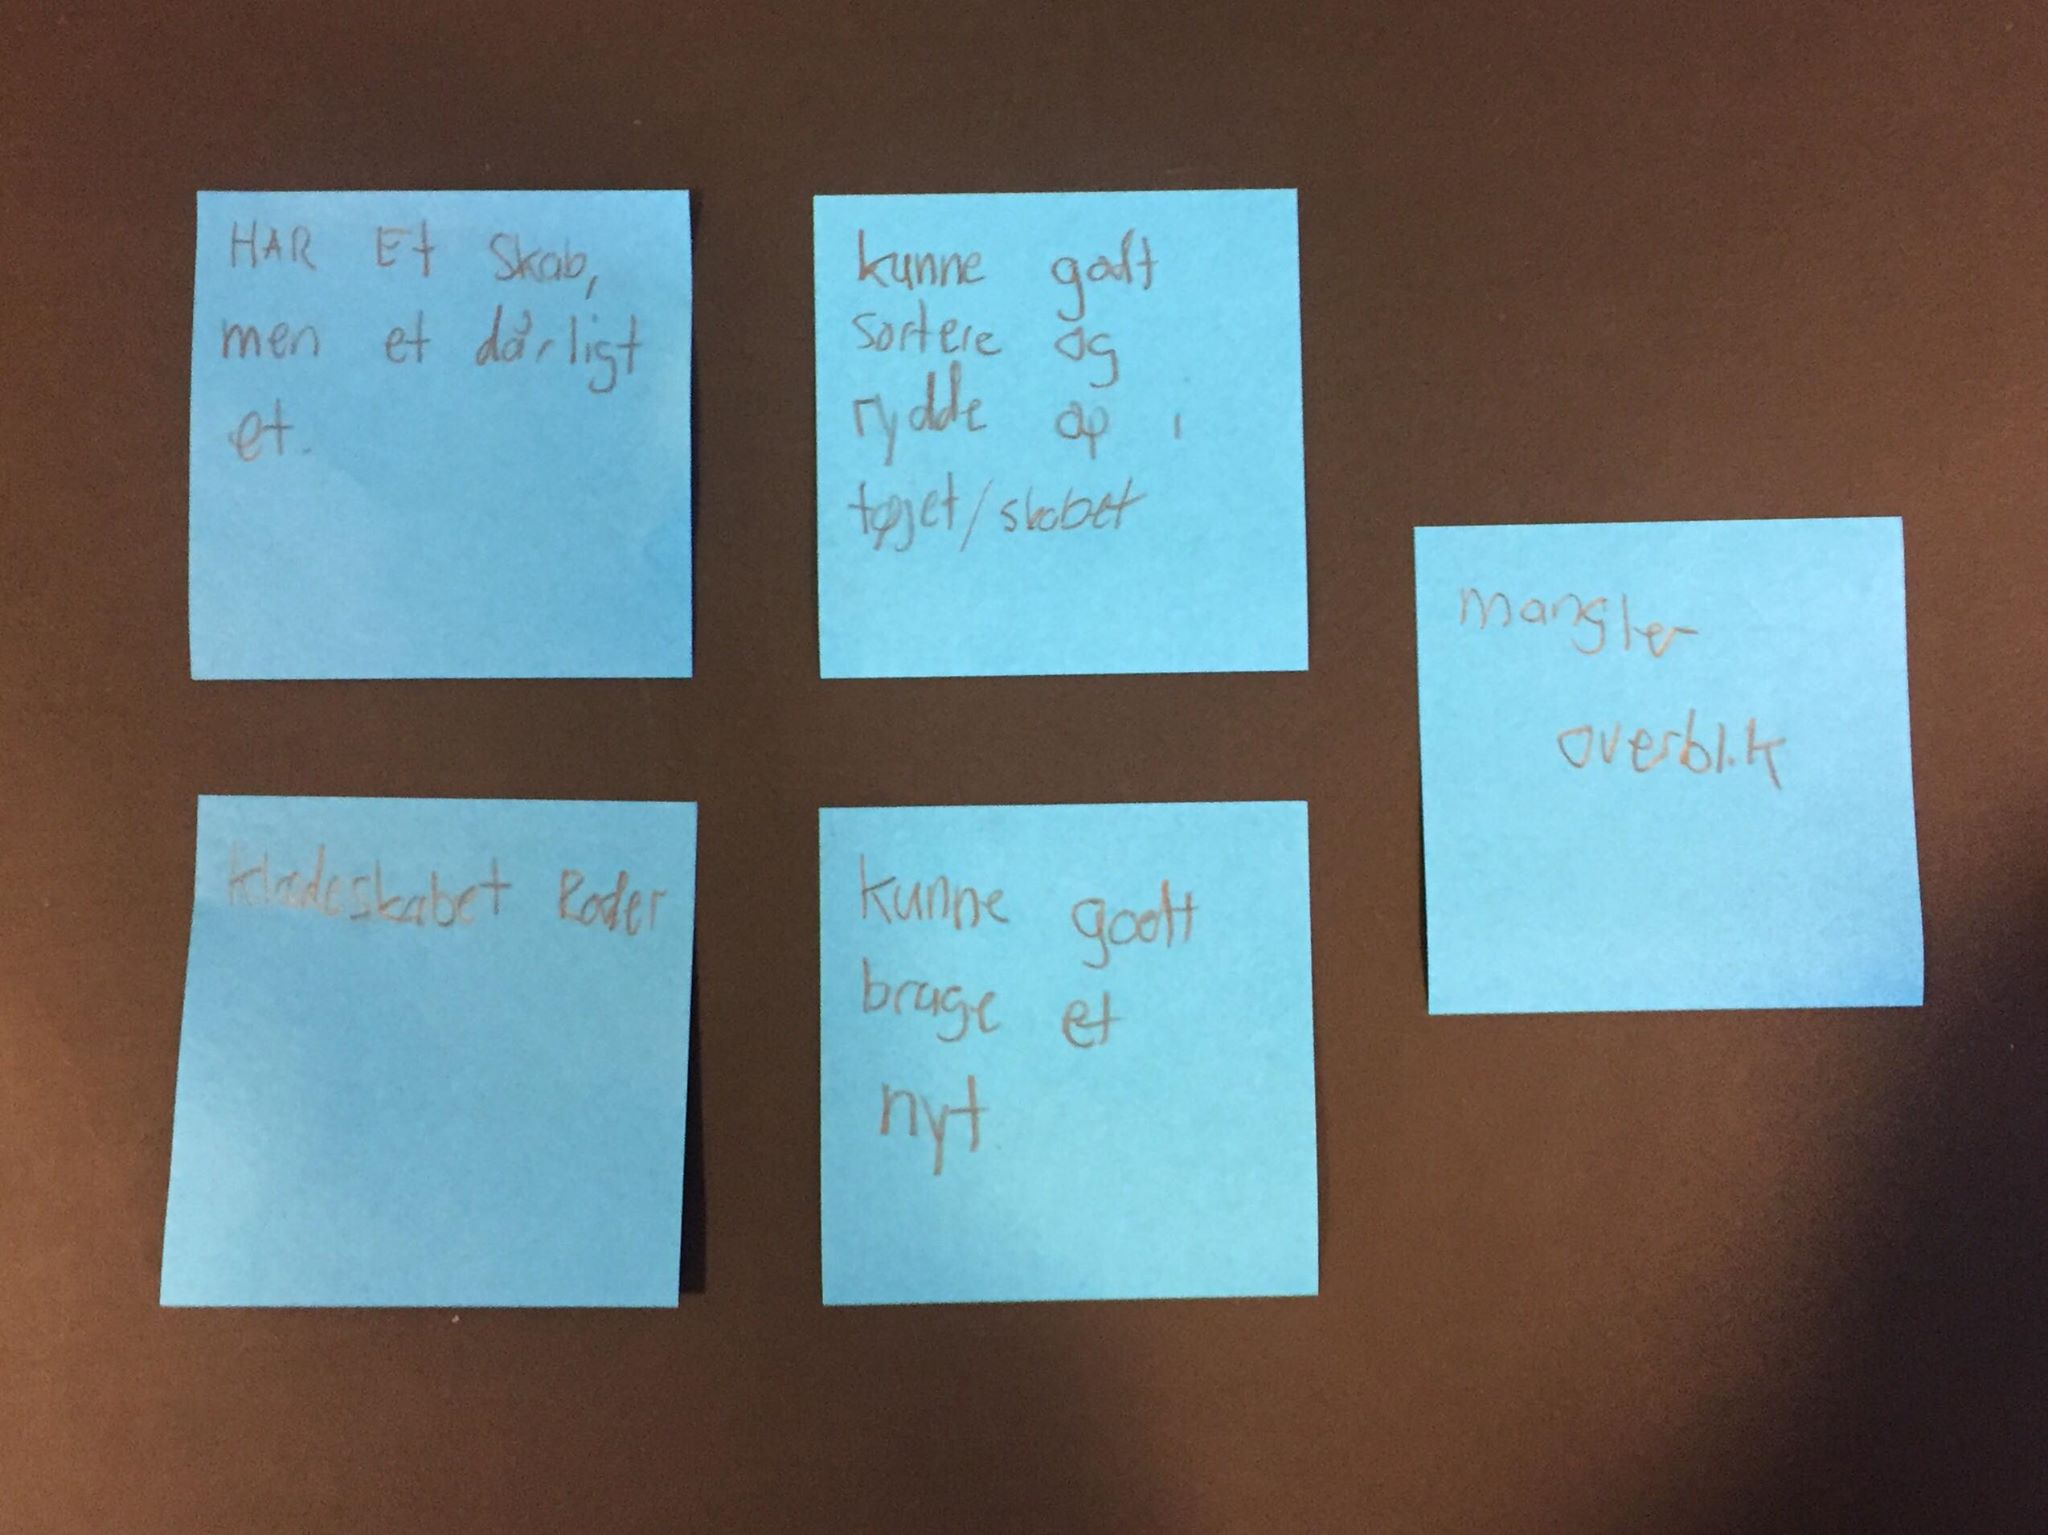 HAR Et Skab,
men et dårligt
et.
kunne godt
sortere og
rydde op i
tøjet/skabet
mangler
overblik
klædeskabet Roder
kunne godt
bruge et
nyt